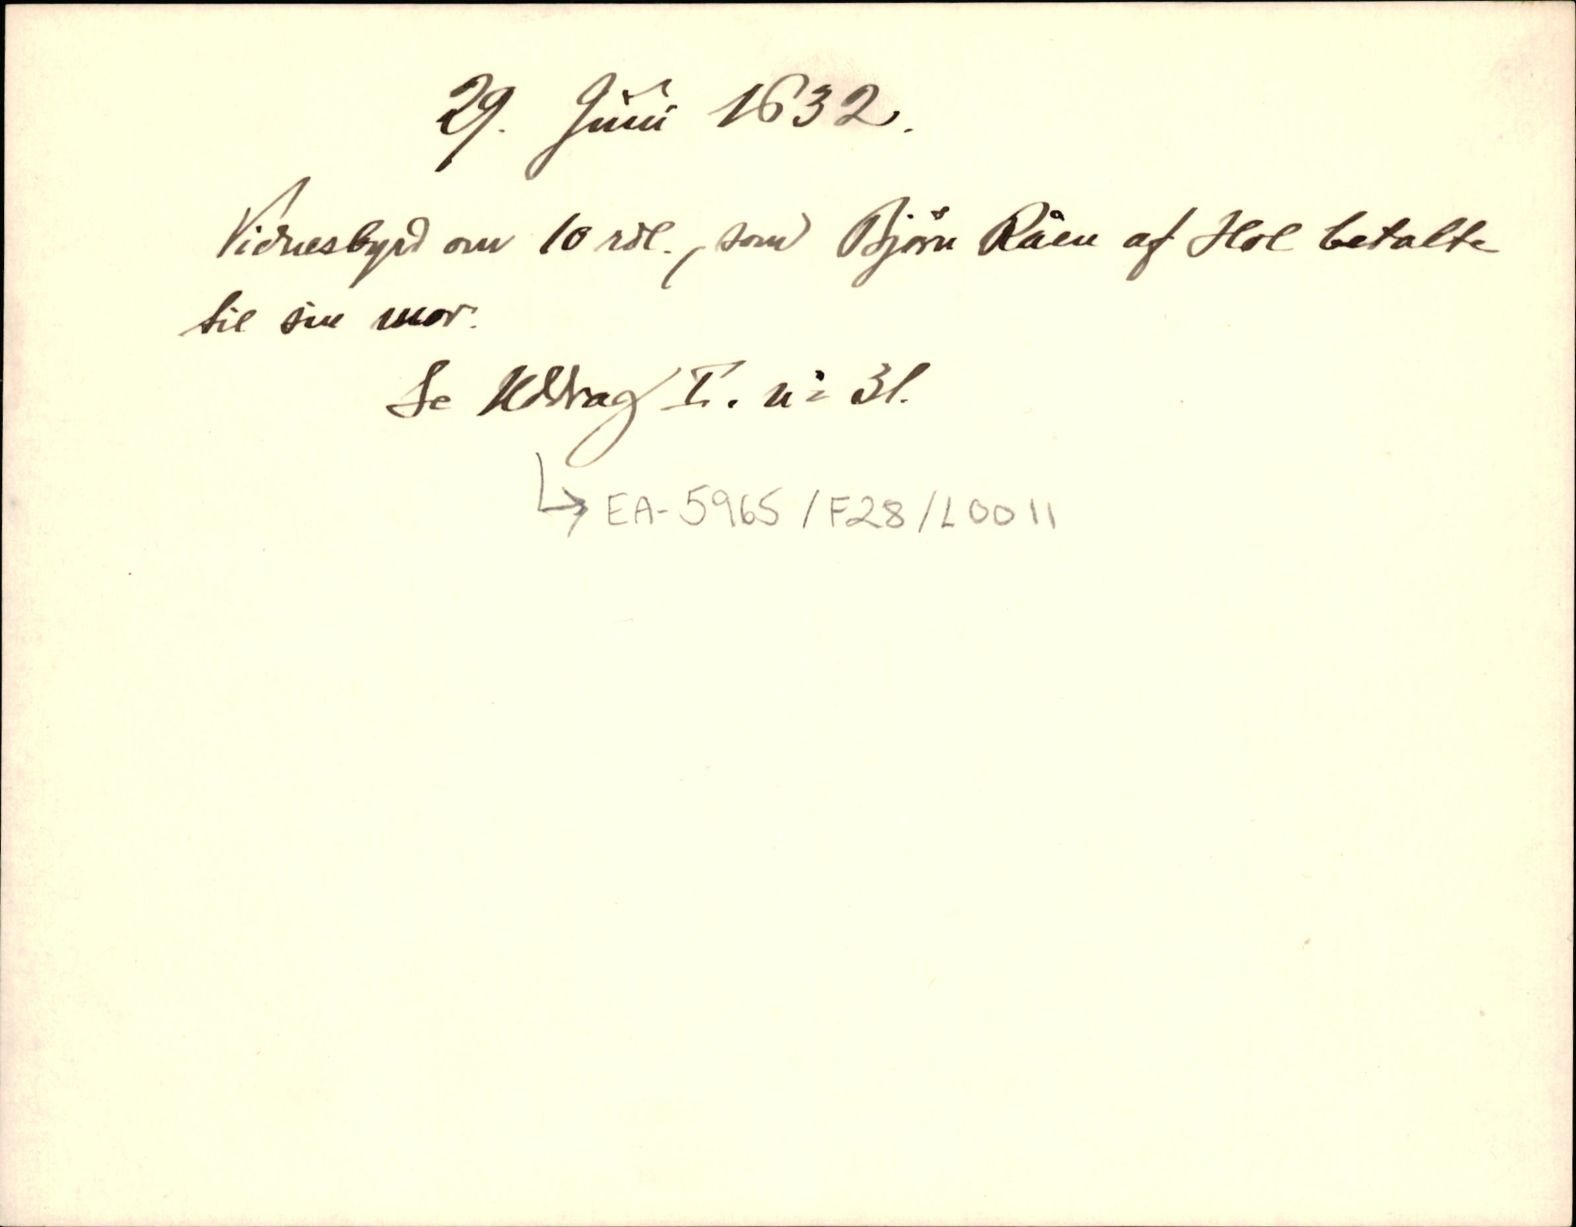 29. Juni 1632.
Vidnesbyrd om 10 rdl., som Björn Råen af Hol betalte
til sin mor.
Se Uddrag I. nº 31.
↳ EA-5965/F28/L0011